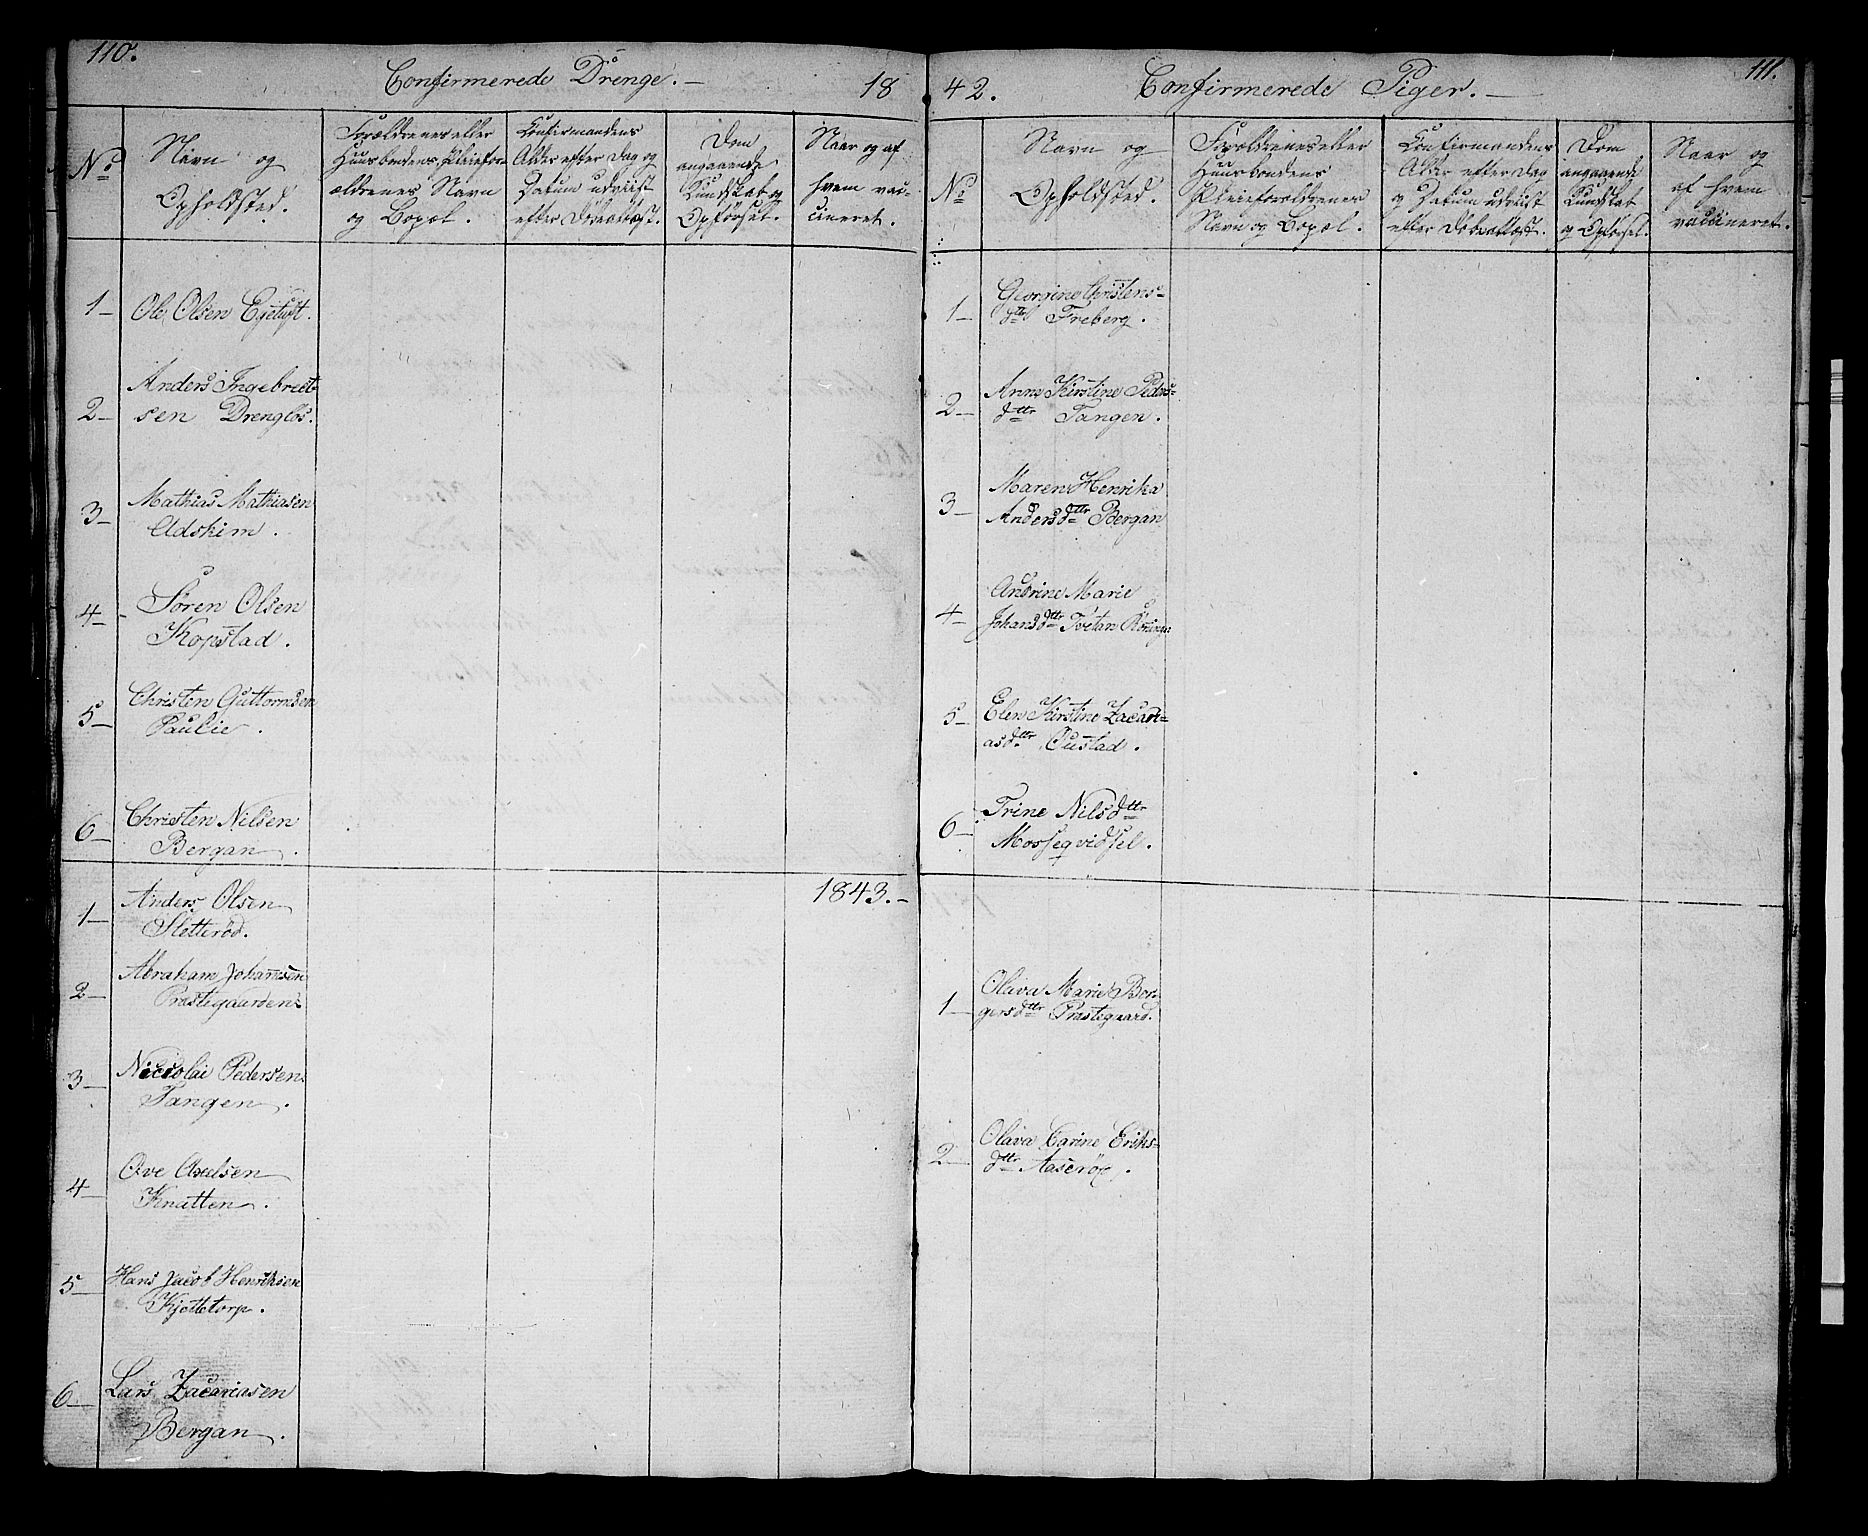 110.
Confirmerede Drenge. — 18
No
Navn og
Opholdsted.
Forældrenes eller
Huusbondens, Pleiefor-
ældrenes Navn
og Bopæl.
Confirmandens
Alder efter Dag og
Datum udviist
efter Døbeattest.
Dom
angaaende
Kundskab og
Opførsel.
Naar og af
hvem vac-
cineret.
1 — Ole Olsen
2 — Anders Ingebreet-
sen Drengløs.
3 — Mathias Mathiasen
Adskim.
4 — Søren Olsen
Kopstad.
5 — Christen Guttormsen
Paulie.
6 — Christen Nilsen
Bergan.
1843. —
1 — Anders Olsen
Sletterød.
2 — Abraham Johannsen
Præstegaarden.
3 — Nicolai Pedersen
Tangen.
4 — Ove Axelsen
Knatten.
5 — Hans Jacob Henriksen
Kjøttetorp.
6 — Lars Zacariasen
Bergan.
111.
42. Confirmerede Piger. —
No
Navn og
Opholdsted.
Forældrenes eller
Huusbondens
Pleieforældrenes
Navn og Bopæl.
Confirmandens
Alder efter Dag
og Datum udviist
efter Døbeattest.
Dom
angaaende
Kundskab
og Opførsel.
Naar og
af hvem
vaccineret.
1 — Georgine Christens-
dtr Freberg.
2 — Anne Kirstine Peders-
dtr Tangen.
3 — Maren Henrika
Andersdtr Bergan
4 — Andrine Marie
Johansdtr Tvetan
5 — Elen Kirstine Zacari-
asdtr Oustad.
6 — Trine Nilsdtr
Mosseqvidsel.
1 — Olava Marie Bor-
gersdtr Præstegaard.
2 — Olava Carine Eriks-
dtr Aaserøe.